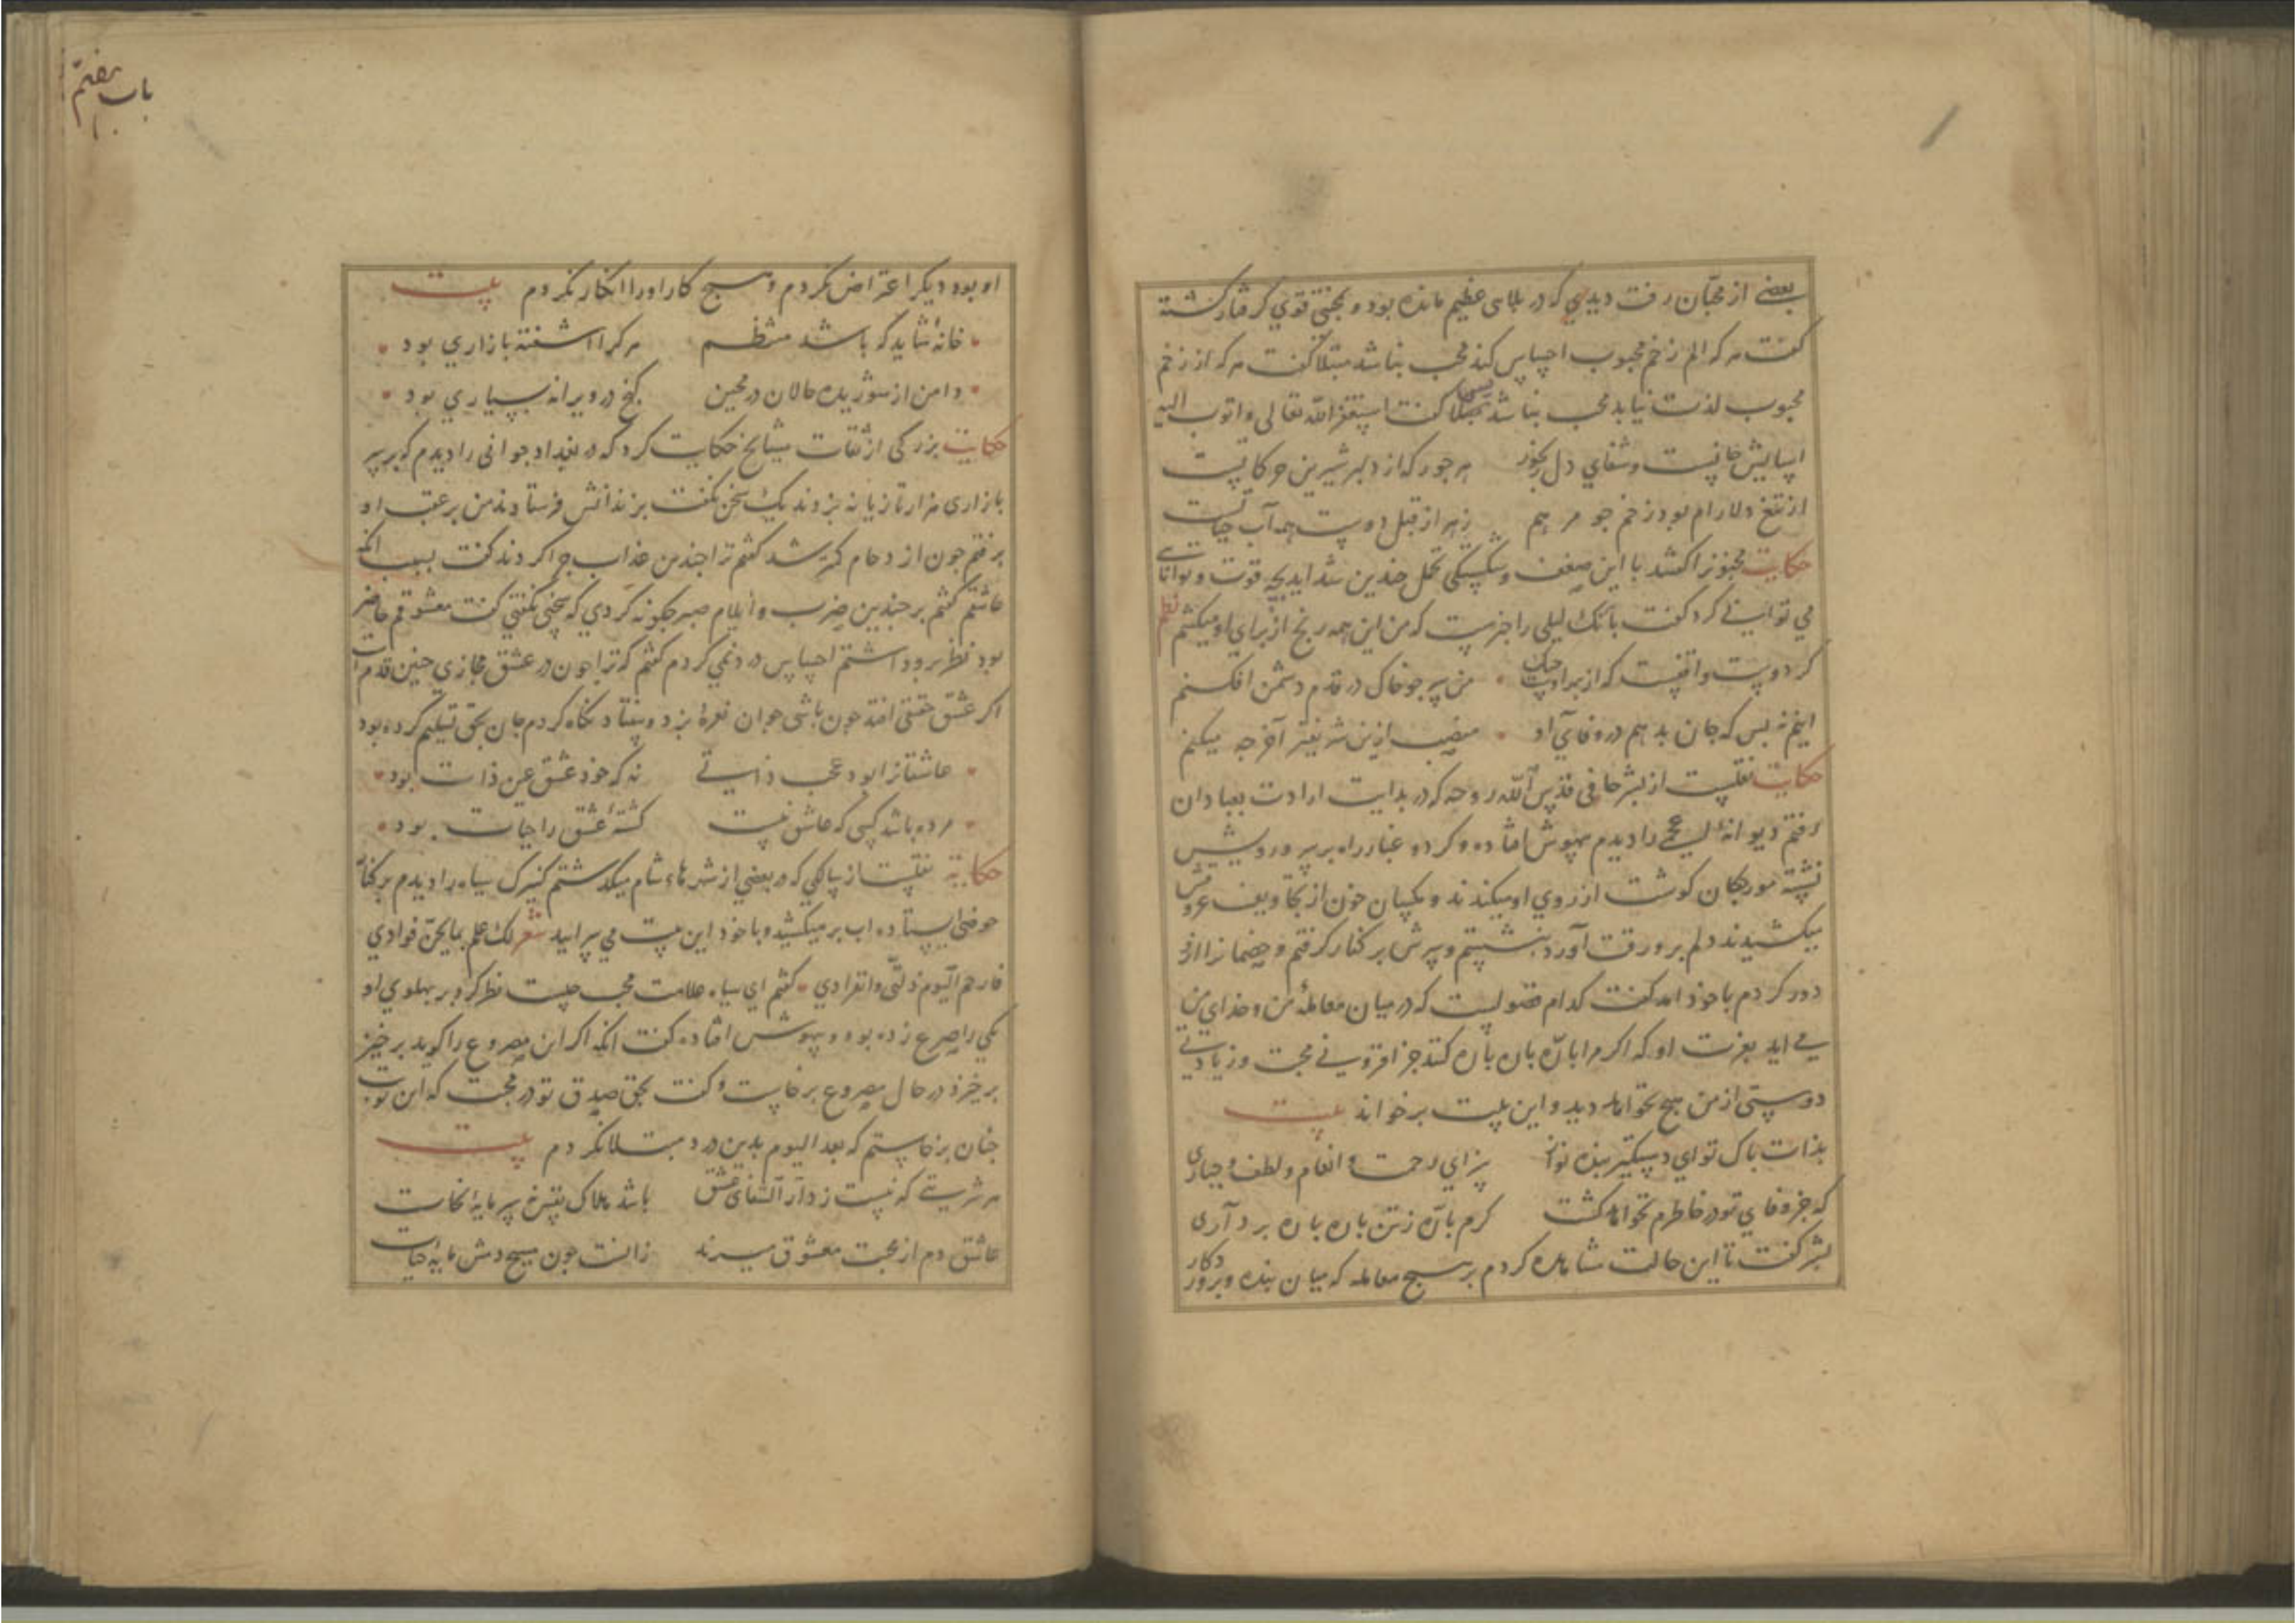 بعضے از محبّان رفت دیدی که در بلای عظیم مانده بود و بمحنتی قوی گرفتار گشته
گفت هر که الم زخم محبوب احساس کند محب نباشد مبتلا گفت هر که از زخم
محبوب لذت نیابد محب نباشد گفت استغفر الله تعالی و اتوب الیه
اسایش جانست و شفای دل رنجور هر جور که از دلبر شیرین حرکاتست
از تیغ دلارام بود زخم چو مرهم زهر از قبل دوست همه آب حیاتست
حکایت مجنونرا گفتند با این ضعف و شکستگی تحمل چندین شداید بچه قوت و توانائی
می توانی کرد گفت بانک لیلی را خبرست که من این همه رنج از برای او میکشم نظم
کر دوست واقفست که از بهر او من سر چو خاک در قدم دشمن افکنم
اینم نه بس که جان بدهم در وفای او منصب ازین شریفتر آخر چه میکنم
حکایت نقلست از بشر حافی قدس الله روحه که در بدایت ارادت بعبادان
رفتم دیوانهٔ را دیدم بیهوش افتاده و گرد و غبار راه بر سر و رویش
نشسته مورچکان گوشت از روی او میکندند و مکسان خون از تجاویف عروقش
میکشیدند دلم برو رقت آورد بنشستم و سرش بر کنار گرفتم و خصمانرا ازو
دور کردم با خود امد گفت کدام فضولیست که در میان معاملهٔ من و خدای من
می اید بعزت او که اکر مرا پاره پاره کند جز افزونی محبت و زیادتی
دوستی از من هیچ نخواهد دید و این بیت برخواند بیت
بذات پاک تو ای دستگیر بنده نواز سزای رحمت و انعام و لطف و جباری
که جز وفای تو در خاطرم نخواهد گشت کرم پاره ز تن پاره پاره برداری
بشر گفت تا این حالت مشاهده کردم بر هیچ معامله که میان بنده و پروردگار
باب هفتم
او بود دیگر اعتراض نکردم و هیچ کار او را انکار نکردم بیت
خانهٔ شاید که باشد منتظم هر کرا اشفته بازاری بود
دامن از شوریده حالان در مچین گنج در ویرانه بسیاری بود
حکایت بزرگی از ثقات مشایخ حکایت کرد که در بغداد جوانی را دیدم که بر سر
بازاری هزار تازیانه بزدند یک سخن نگفت بزندانش فرستادند من بر عقب او
برفتم چون ازدحام کمتر شد گفتم ترا چندین عذاب چرا کردند گفت بسبب آنکه
عاشقم گفتم بر چندین ضرب و ایلام صبر چگونه کردی که سخنی نگفتی گفت معشوقم حاضر
بود نظر برو داشتم احساس درد نمی کردم گفتم که ترا چون در عشق مجازی چنین قدم است
اکر عشق حقیقی افتد چون باشی جوان نعرهٔ بزد و بیفتاد نگاه کردم جان بحق تسلیم کرده بود
عاشقانرا بود عجب ذاتی نه که خود عشق عین ذات بود
مرده باشد کسی که عاشق نیست کشتهٔ عشق را حیات بود
حکایة نقلست از سالکی که در بعضی از شهرهاء شام میگذشتم کنیزک سیاه را دیدم بر کنار
حوضی ایستاده اب بر میکشید و با خود این بیت می سرایید شعر لک علم بما یجنّ فوادی
فارحم الیوم ذلّتی و انفرادی گفتم ای سیاه علامت محب چیست نظر کرد و بر پهلوی او
یکی را صرع زده بود و بیهوش افتاده گفت انکه اکر این مصروع را گوید بر خیز
برخیزد در حال مصروع برخاست و گفت بحق صدق تو در محبت که این نوبت
چنان برخاستم که بعد الیوم بدین درد مبتلا نکردم بیت
هر شربتی که نیست ز دار الشفای عشق باشد هلاک نفس سرمایهٔ نجات
عاشق دم از محبت معشوق میزند زانست چون مسیح دمش مایهٔ حیات